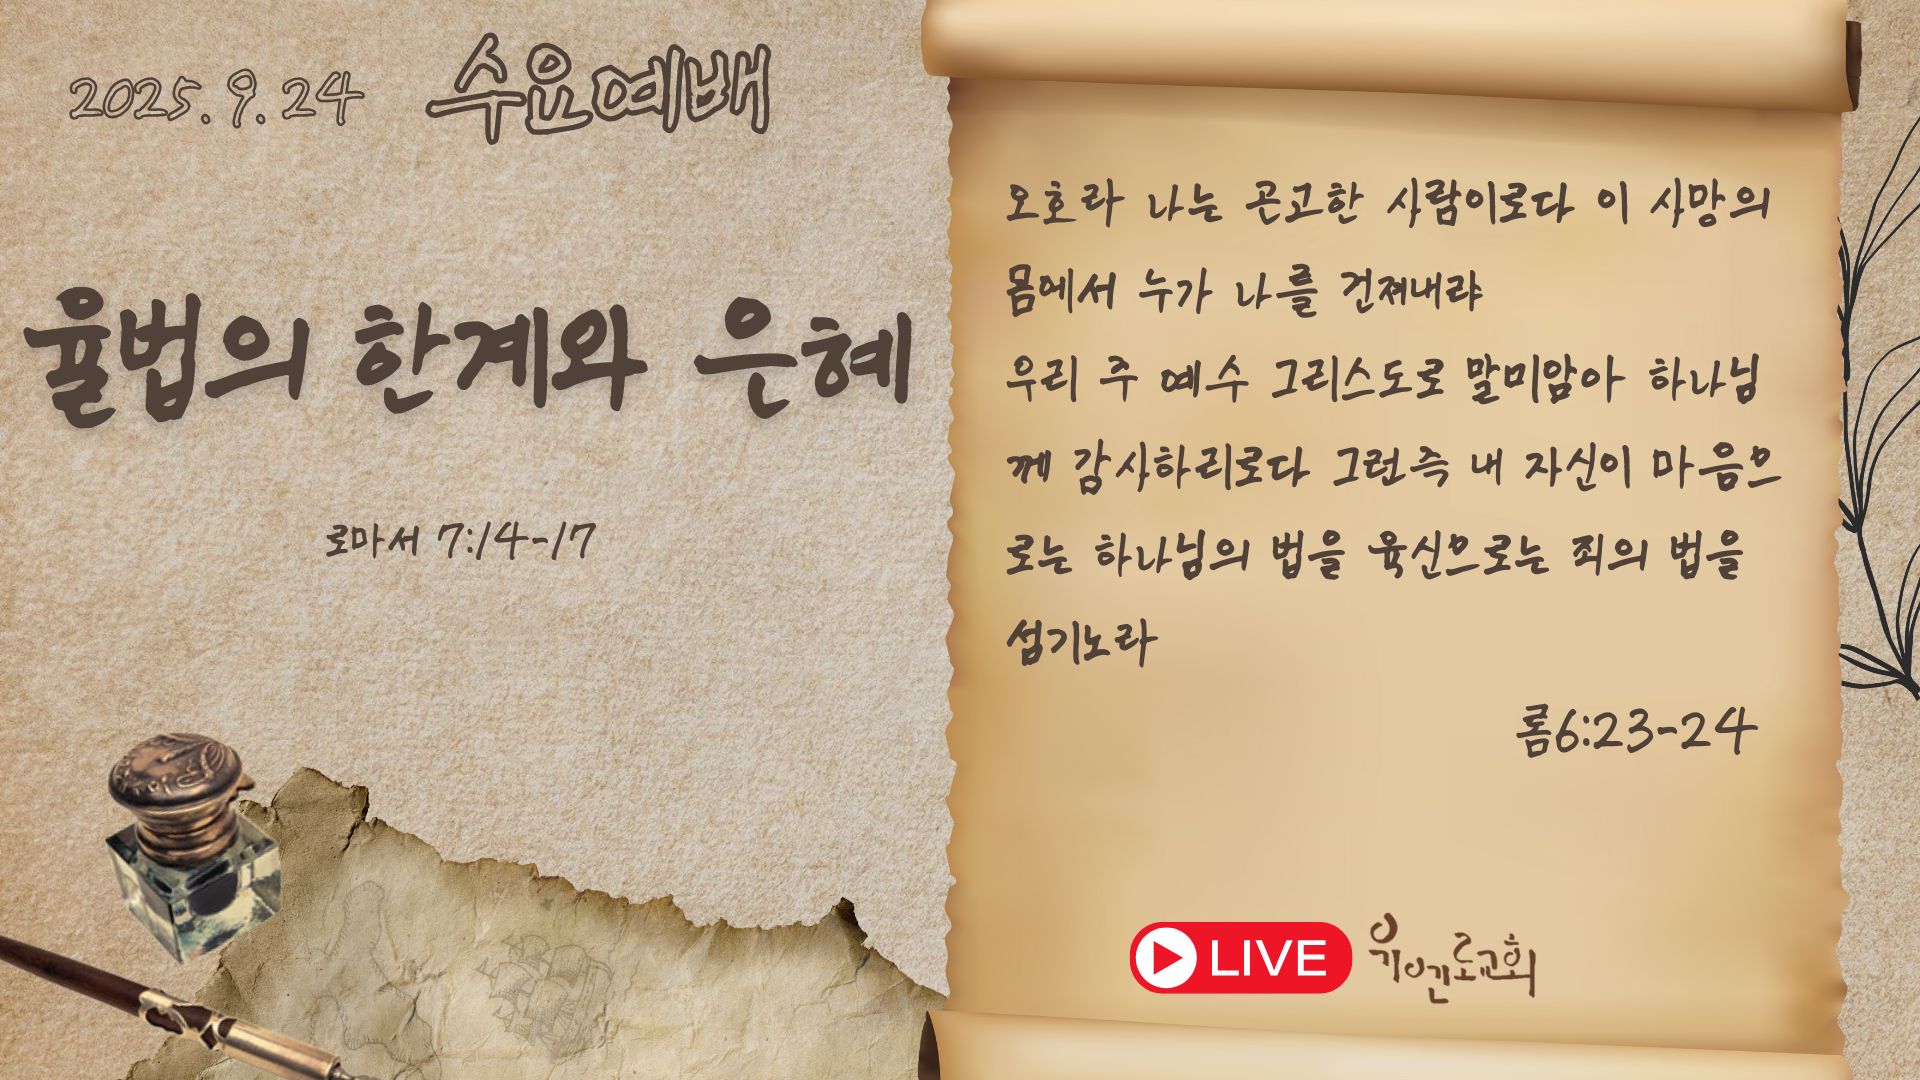 2025. 9. 24
수요예배
율법의 한계와 은혜
로마서 7:14-17
오호라 나는 곤고한 사람이로다 이 사망의
몸에서 누가 나를 건져내랴
우리 주 예수 그리스도로 말미암아 하나님
께 감사하리로다 그런즉 내 자신이 마음으
로는 하나님의 법을 육신으로는 죄의 법을
섬기노라
롬6:23-24
LIVE